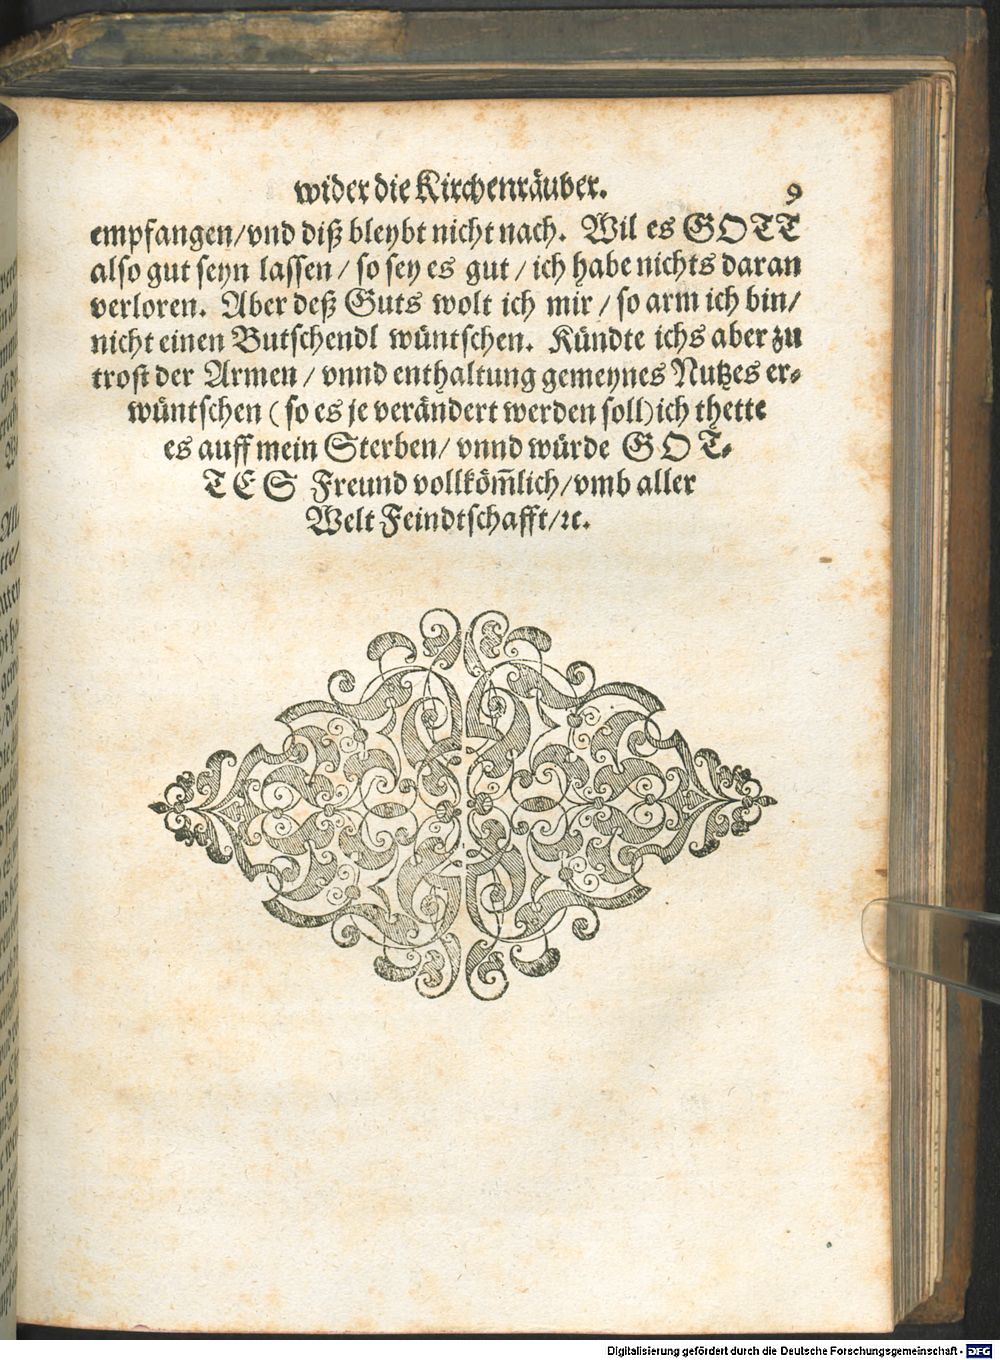 wider die Kirchenräuber. 9
empfangen/vnd diß bleybt nicht nach. Wil es GOTT
also gut seyn lassen/ so sey es gut/ ich habe nichts daran
verloren. Aber deß Guts wolt ich mir/ so arm ich bin/
nicht einen Butschendl wüntschen. Kündte ichs aber zu
trost der Armen/ vnnd enthaltung gemeynes Nutzes er-
wüntschen (so es je verändert werden soll) ich thette
es auff mein Sterben/ vnnd würde GOT-
TES Freund vollköm̃lich/vmb aller
Welt Feindtschafft/ꝛc.
Digitalisierung gefördert durch die Deutsche Forschungsgemeinschaft - DFG